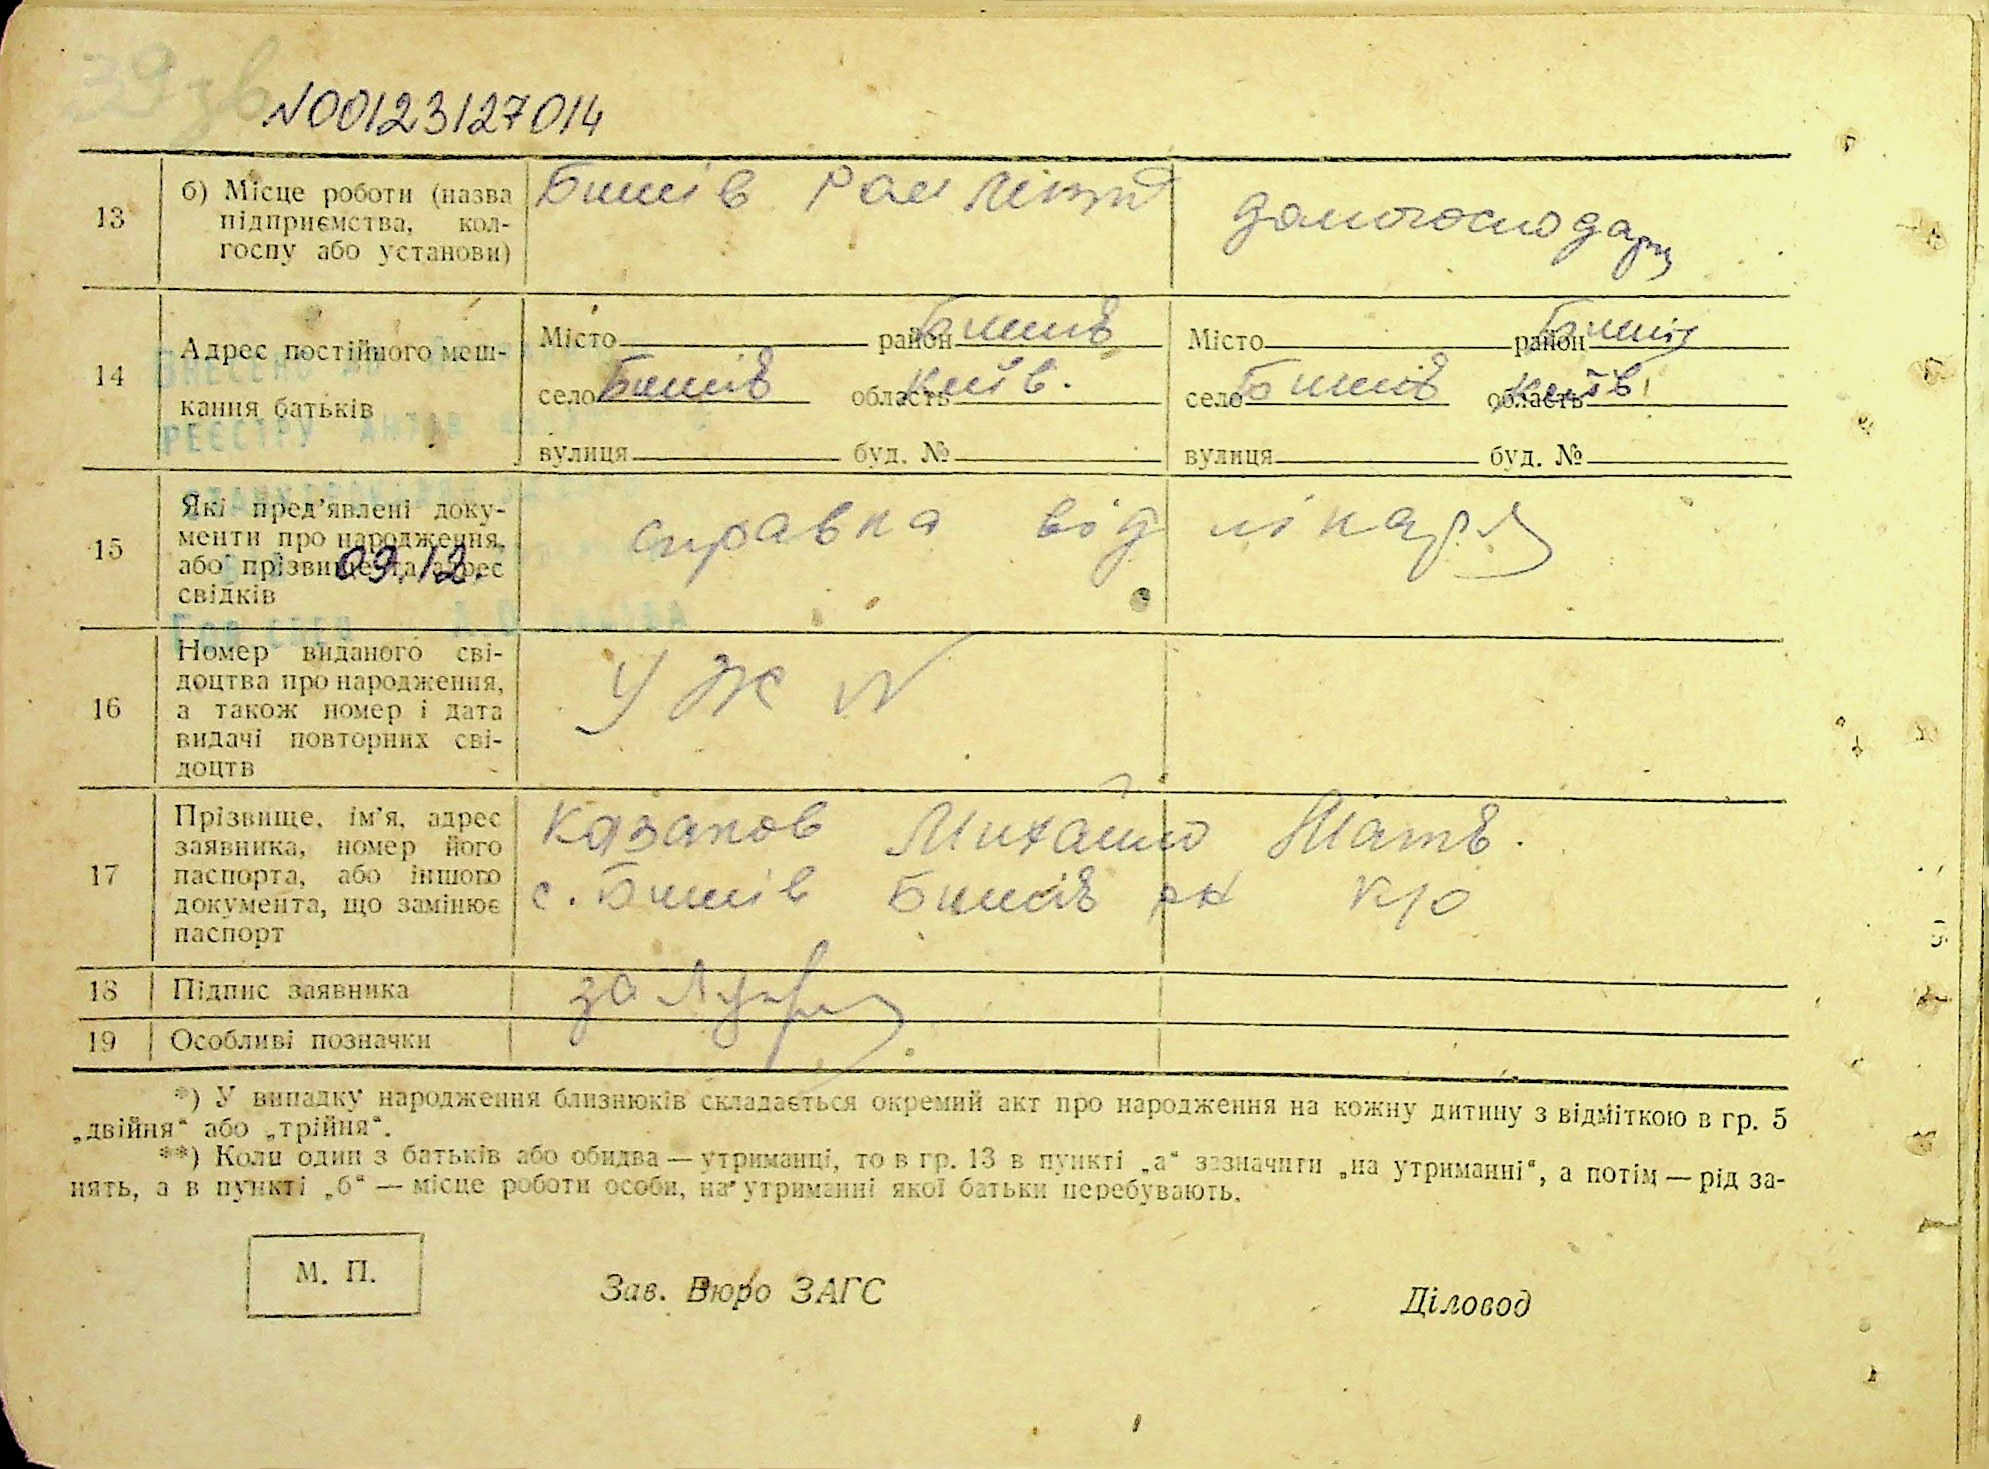 39 зв
N00123127014
13
б) Місце роботи (назва підприємства, кол-
госпу або установи)
Бишів Рай
домогосподар
14
Адрес постійного меш-
кання батьків
Місто район Бишів
село Бишів область Київ.
вулиця буд. №
Місто район Бишів
село Бишів область Київ
вулиця буд. №
ВНЕСЕНО ДО
РЕЄСТРУ АКТІВ
15
Які пред’явлені доку-
менти про народження,
або прізвище та адрес
свідків
09.12.
справка від лікаря
16
Номер виданого сві-
доцтва про народження,
а також номер і дата
видачі повторних сві-
доцтв
УЖ N
17
Прізвище, ім’я, адрес
заявника, номер його
паспорта, або іншого
документа, що замінює
паспорт
Казаков Михайло Матв.
с. Бишів Бишів рн К/о
18
Підпис заявника
за
19
Особливі позначки
*) У випадку народження близнюків складається окремий акт про народження на кожну дитину з відміткою в гр. 5
„двійня“ або „трійня“.
**) Коли один з батьків або обидва — утриманці, то в гр. 13 в пункті „а“ зазначити „на утриманні“, а потім — рід за-
нять, а в пункті „б“ — місце роботи особи, на утриманні якої батьки перебувають.
М. П.
Зав. Бюро ЗАГС
Діловод